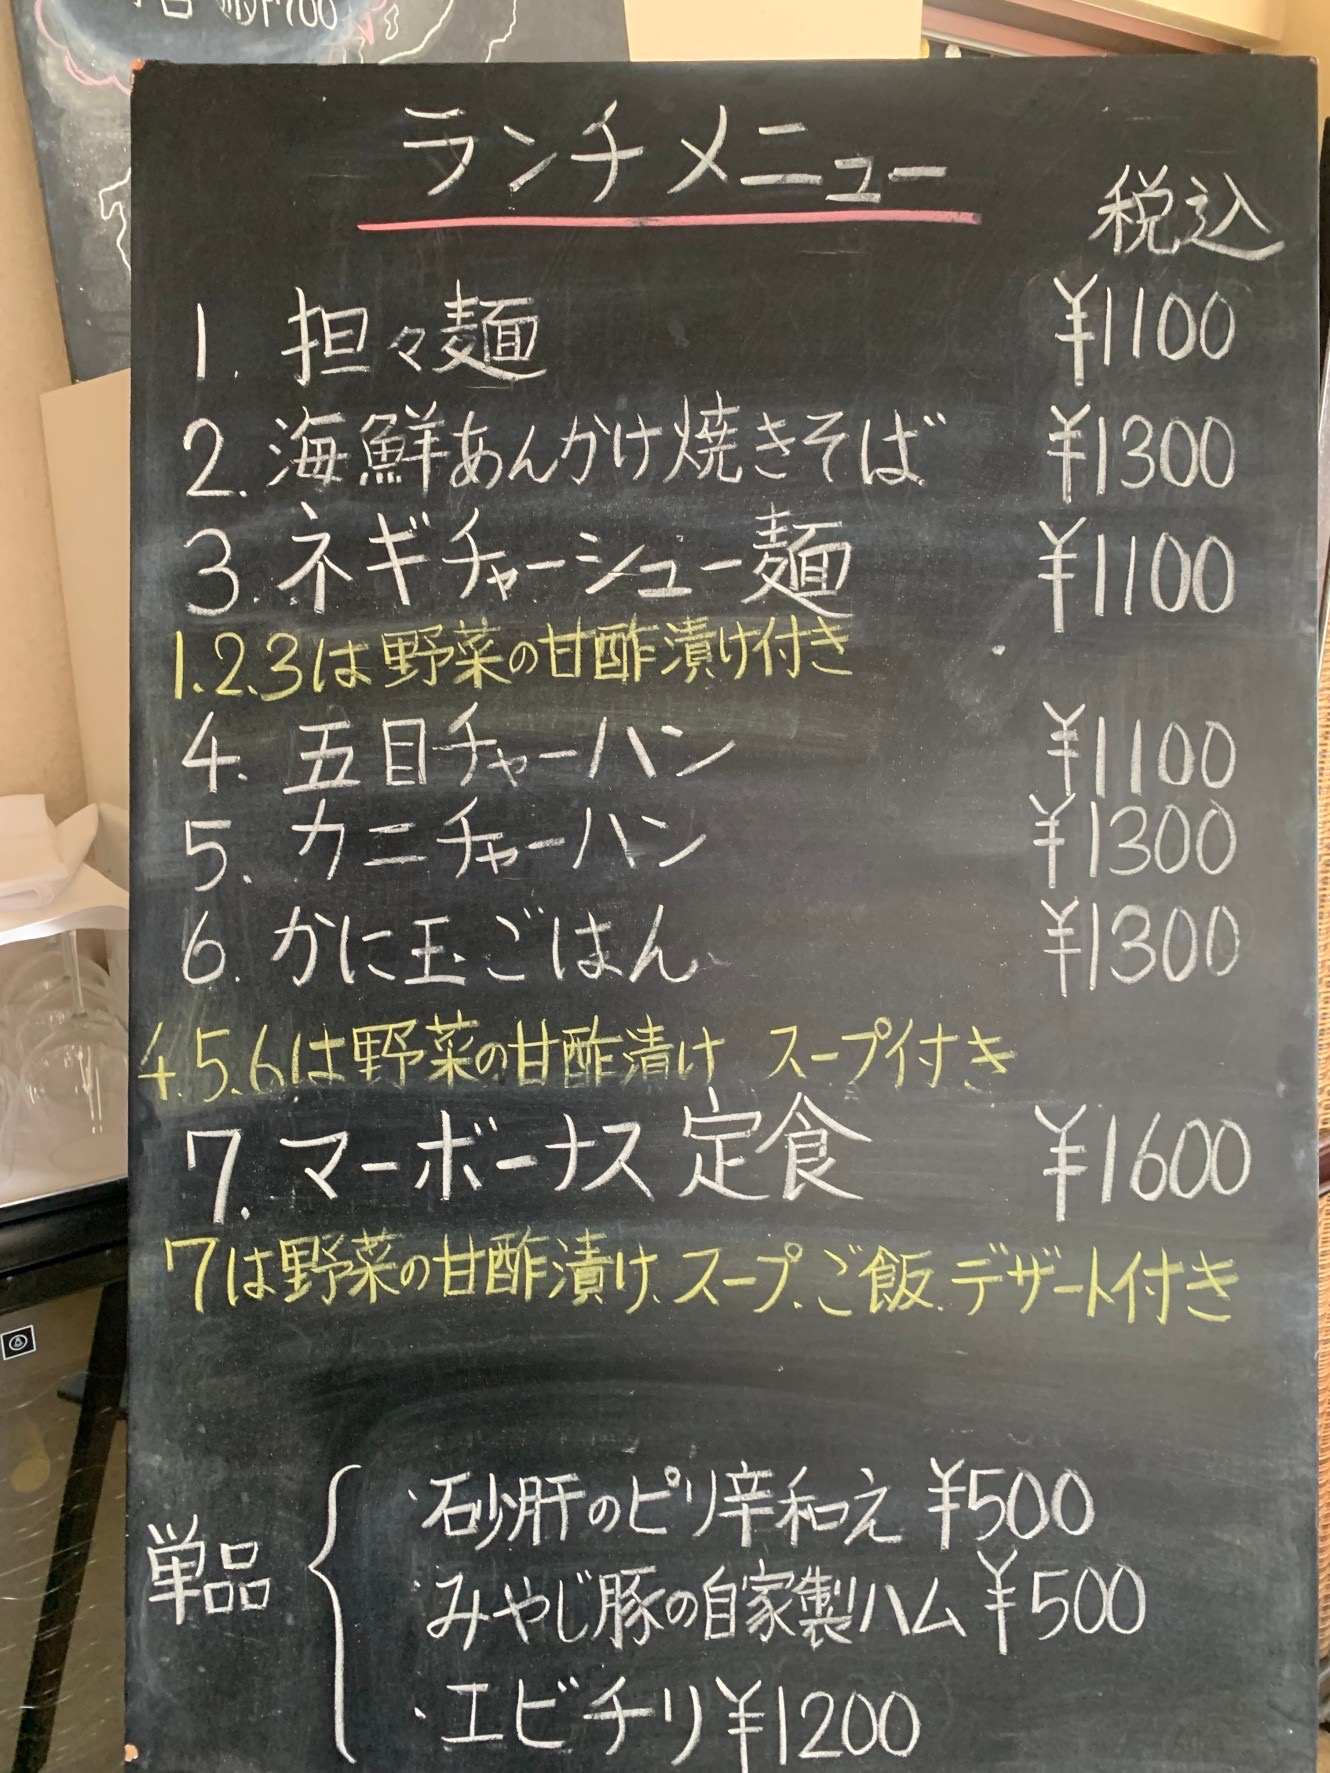 ¥1700
ランチメニュー
税込
1. 担々麺 ¥1100
2. 海鮮あんかけ焼きそば ¥1300
3. ネギチャーシュー麺 ¥1100
1.2.3は野菜の甘酢漬け付き
4. 五目チャーハン ¥1100
5. カニチャーハン ¥1300
6. かに玉ごはん ¥1300
4.5.6は野菜の甘酢漬け スープ付き
7. マーボーナス定食 ¥1600
7は野菜の甘酢漬け、スープ、ご飯、デザート付き
単品
・砂肝のピリ辛和え ¥500
・みやじ豚の自家製ハム ¥500
・エビチリ ¥1200